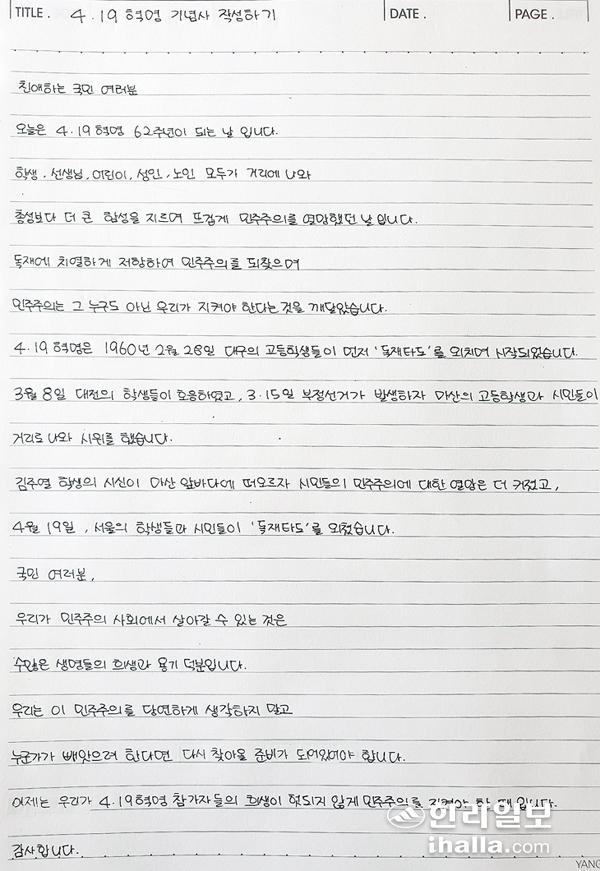 TITLE . 4. 19 혁명 기념사 작성하기 DATE . PAGE .
친애하는 국민 여러분
오늘은 4. 19 혁명 62주년이 되는 날 입니다.
학생. 선생님, 어린이, 성인, 노인 모두가 거리에 나와
총성보다 더 큰 함성을 지르며 뜨겁게 민주주의를 열망했던 날 입니다.
독재에 치열하게 저항하여 민주주의를 되찾으며
민주주의는 그 누구도 아닌 우리가 지켜야 한다는 것을 깨달았습니다.
4. 19 혁명은 1960년 2월 28일 대구의 고등학생들이 먼저 '독재타도'를 외치며 시작되었습니다.
3월 8일 대전의 학생들이 호응하였고, 3. 15일 부정선거가 발생하자 마산의 고등학생과 시민들이
거리로 나와 시위를 했습니다.
김주열 학생의 시신이 마산 앞바다에 떠오르자 시민들의 민주주의에 대한 열망은 더 커졌고,
4월 19일, 서울의 학생들과 시민들이 '독재타도'를 외쳤습니다.
국민 여러분,
우리가 민주주의 사회에서 살아갈 수 있는 것은
수많은 생명들의 희생과 용기 덕분입니다.
우리는 이 민주주의를 당연하게 생각하지 말고
누군가가 빼앗으려 한다면 다시 찾아올 준비가 되어있어야 합니다.
이제는 우리가 4. 19혁명 참가자들의 희생이 헛되지 않게 민주주의를 지켜야 할 때 입니다.
감사합니다.
한라일보
ihalla.com
YANG